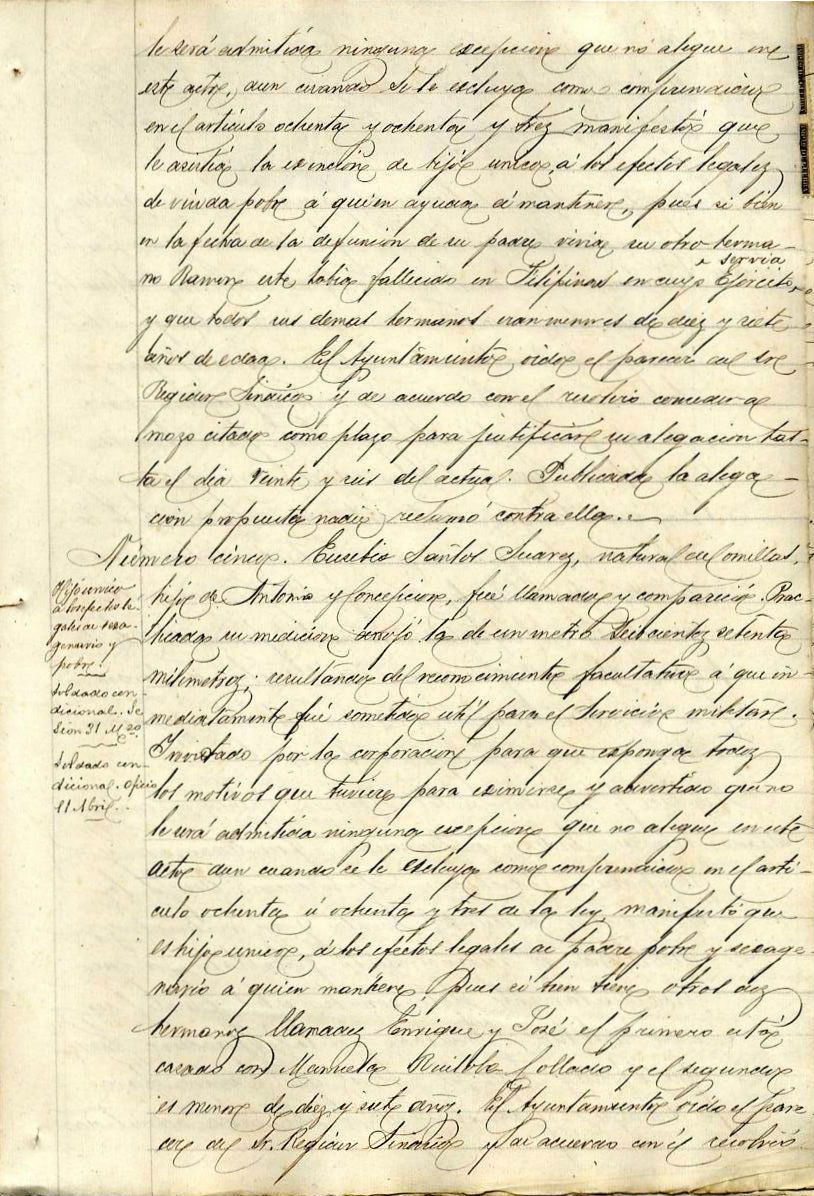 le será admitida ninguna excepcion que no alegue en
este acto, aun cuando se le escluya como comprendido
en el artículo ochenta y ochenta y tres manifestó que
le asistia la esencion de hijo unico, á los efectos legales
de viuda pobre á quien ayuda á mantener, pues si bien
en la fecha de la defuncion de su padre vivia su otro herma-
no Ramon este habia fallecido en Filipinas en cuyo Ejército, servia
y que todos sus demas hermanos eran menores de diez y siete
años de edad. El Ayuntamiento oido el parecer del Sor
Regidor Sindico y de acuerdo con el resolvió conceder al
mozo citado como plazo para justificar su alegacion has-
ta el dia veinte y seis del actual. Publicada la alega-
cion propuesta nadie reclamó contra ella.
Número cinco. Eusebio Santos Suarez, natural de Comillas,
hijo de Antonio y Concepcion, fué llamado y compareció. Prac-
ticada su medicion arrojó la de un metro seiscientos setenta
milimetros; resultando del reconocimiento facultativo á que in-
mediatamente fué sometido util para el servicio militar.
Invitado por la corporacion para que esponga todos
los motivos que tuviere para eximirse y advertido que no
le será admitida ninguna escepcion que no alegue en este
acto aun cuando se le escluya como comprendido en el artí-
culo ochenta ú ochenta y tres de la ley, manifestó que
es hijo unico, á los efectos legales de padre pobre y sexage-
nario á quien mantiene, pues si bien tiene otros dos
hermanos llamados Enrique y José el primero está
casado con Manuela Ruiloba Collado y el segundo
es menor de diez y siete años. El Ayuntamiento oido el pare-
cer del Sr. Regidor Sindico y de acuerdo con él resolvió
Hijo unico
a los efectos le-
gales de sexa-
genario y
pobre.
Soldado con-
dicional. Se-
sion 31 Mzo
Soldado con-
dicional. Oficio
11 Abril.